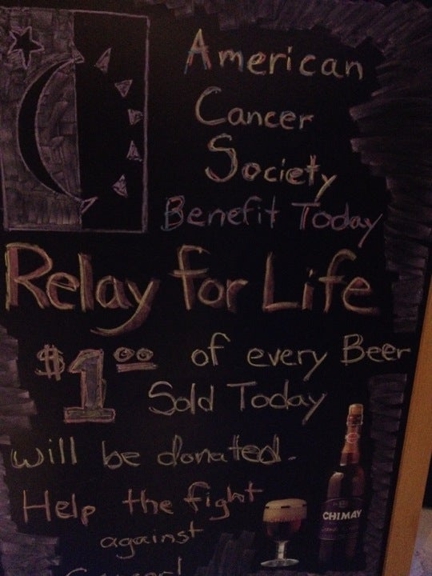 American
Cancer
Society
Benefit Today
Relay for Life
$1.00 of every Beer
Sold Today
will be donated.
Help the fight
against
CHIMAY